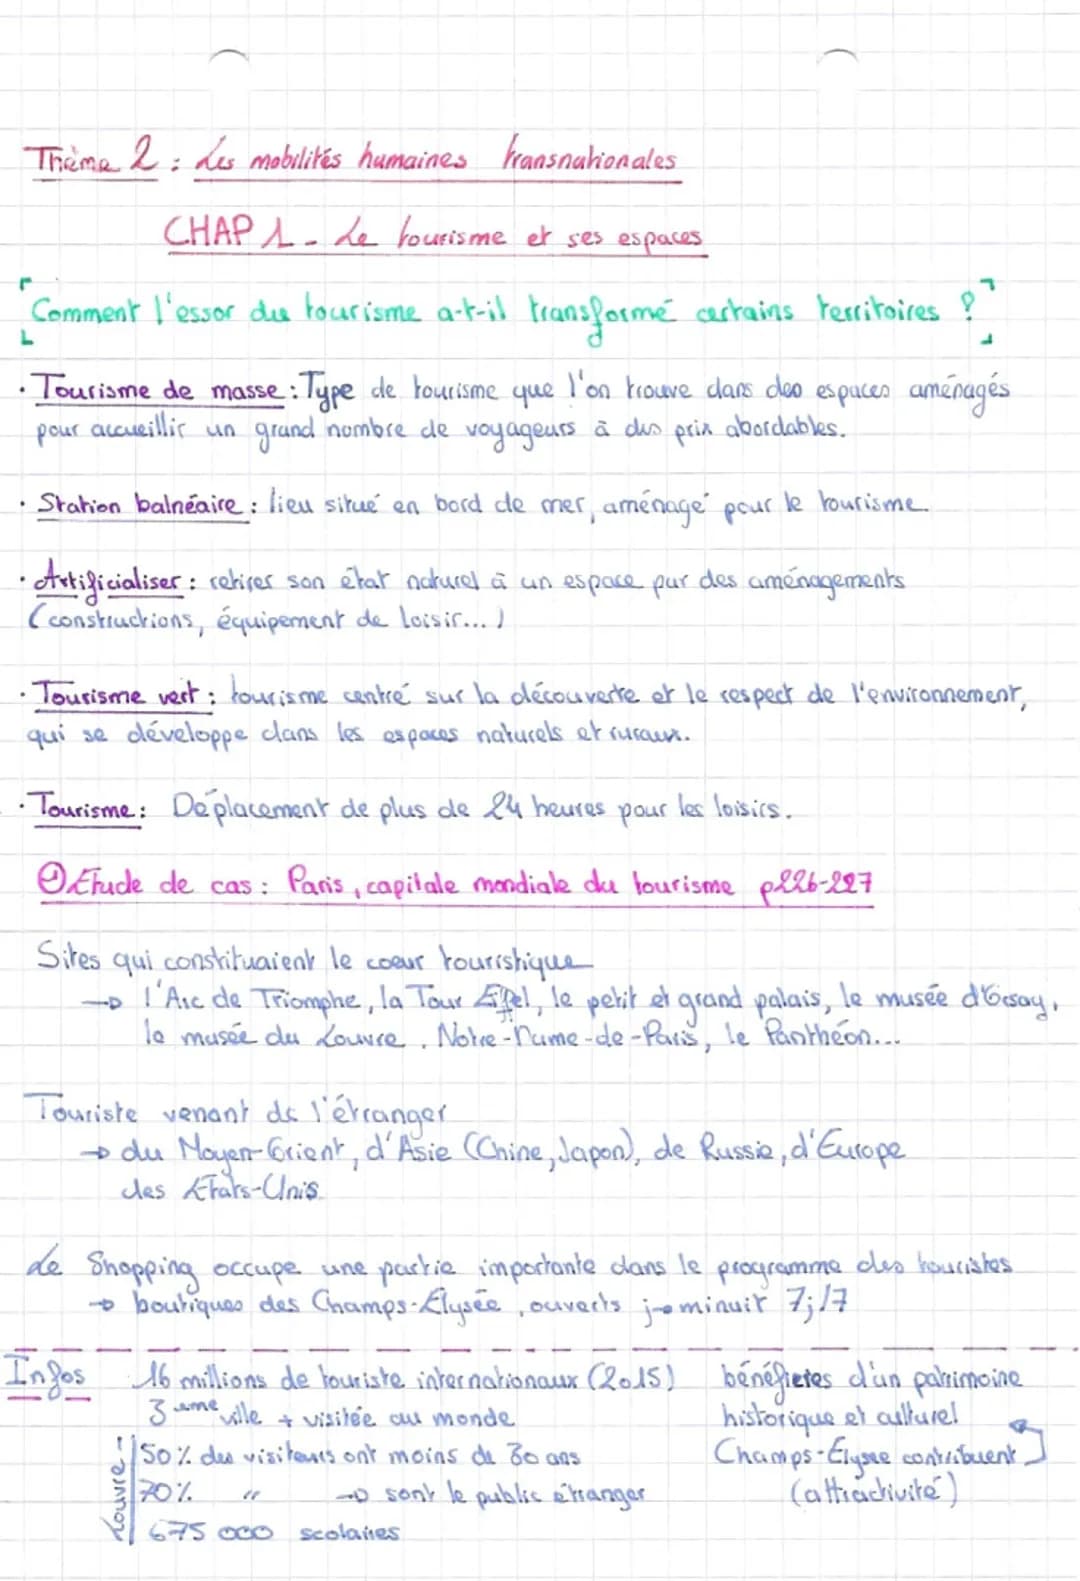 Thème 2 : Les mobilités humaines transnationales
CHAP 1 - Le tourisme et ses espaces
Comment l'essor du tourisme a-t-il transformé certains territoires ?
· Tourisme de masse : Type de tourisme que l'on trouve dans des espaces aménagés
pour accueillir un grand nombre de voyageurs à des prix abordables.
· Station balnéaire : lieu situé en bord de mer, aménagé pour le tourisme.
· Artificialiser : retirer son état naturel à un espace par des aménagements
(constructions, équipement de loisir...)
· Tourisme vert : tourisme centré sur la découverte et le respect de l'environnement,
qui se développe dans les espaces naturels et ruraux.
· Tourisme : Déplacement de plus de 24 heures pour les loisirs.
① Etude de cas : Paris, capitale mondiale du tourisme p226-227
Sites qui constituaient le coeur touristique
→ l'Arc de Triomphe, la Tour Eiffel, le petit et grand palais, le musée d'Orsay,
le musée du Louvre, Notre-Dame-de-Paris, le Panthéon...
Touriste venant de l'étranger
→ du Moyen-Orient, d'Asie (Chine, Japon), de Russie, d'Europe
des Etats-Unis
Le Shopping occupe une partie importante dans le programme des touristes
→ boutiques des Champs-Elysée, ouverts j→minuit 7j/7
Infos 16 millions de touriste internationaux (2015)
3 eme ville + visitée au monde
Louvre
50% des visiteurs ont moins de 30 ans
70% " → sont le public étranger
675 000 scolaires
bénéfictes d'un patrimoine
historique et culturel
Champs-Elysee contribuent
(attractivité)